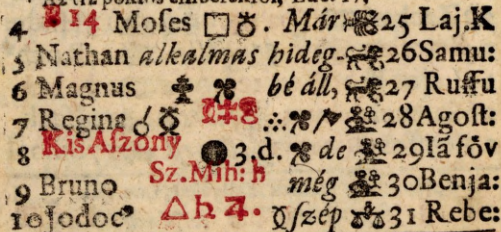 4 14 Moſes □☿. Már 25 Laj.K
5 Nathan alkalmas hideg. 26 Samu:
6 Magnus bé áll, 27 Ruffu
7 Regina ☌☿ 28 Agoſt:
8 Kis Aſzony 3.d. de 29 Iã föv
Sz. Mih: h
9 Bruno még 30 Benja:
10 Jodoc' △♄♃. ☿ ſzép 31 Rebe: